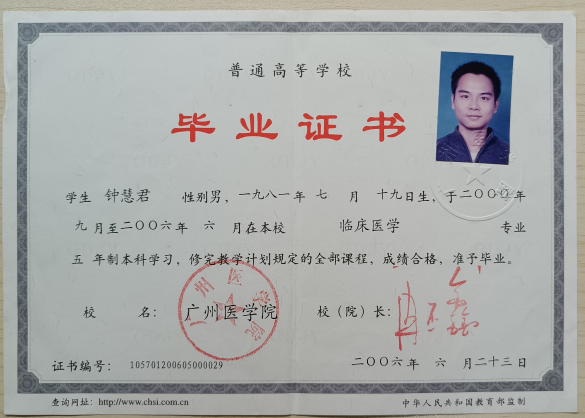 普通高等学校
毕业证书
学生 钟慧君 性别男，一九八一年 七 月 十九日生，于二〇〇〇年
九 月至二〇〇六年 六 月在本校 临床医学 专业
五 年制本科学习，修完教学计划规定的全部课程，成绩合格，准予毕业。
校 名： 广州医学院 校（院）长：
广州医学院
证书编号： 105701200605000029 二〇〇六年 六 月二十三日
查询网址：http://www.chsi.com.cn 中华人民共和国教育部监制